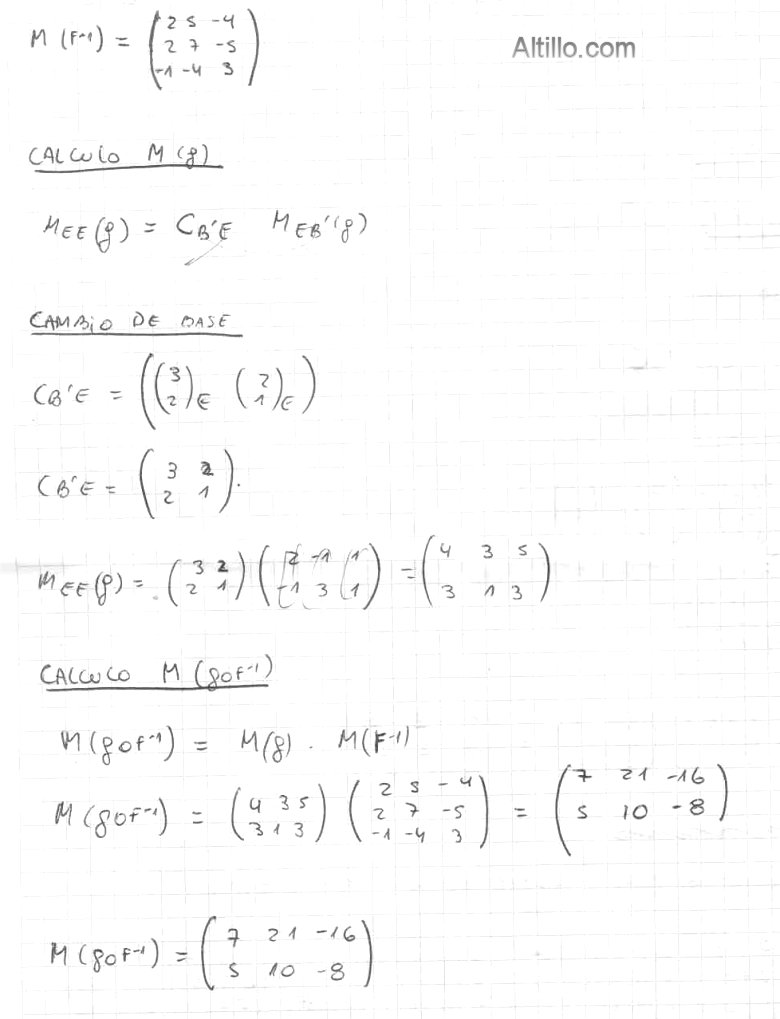 M (F⁻¹) = ( 2 5 -4
2 7 -5
-1 -4 3 )
Altillo.com
CALCULO M (g)
M EE (g) = C B'E M EB' (g)
CAMBIO DE BASE
C B'E = ( (3 2) E (2 1) E )
C B'E = ( 3 2
2 1 ).
M EE (g) = ( 3 2 ) ( 2 -1 1 ) = ( 4 3 5 )
( 2 1 ) ( -1 3 1 ) ( 3 1 3 )
CALCULO M (g o F⁻¹)
M (g o F⁻¹) = M (g) . M (F⁻¹)
M (g o F⁻¹) = ( 4 3 5 ) ( 2 5 -4 ) = ( 7 21 -16 )
( 3 1 3 ) ( 2 7 -5 ) ( 5 10 -8 )
( -1 -4 3 )
M (g o F⁻¹) = ( 7 21 -16
5 10 -8 )